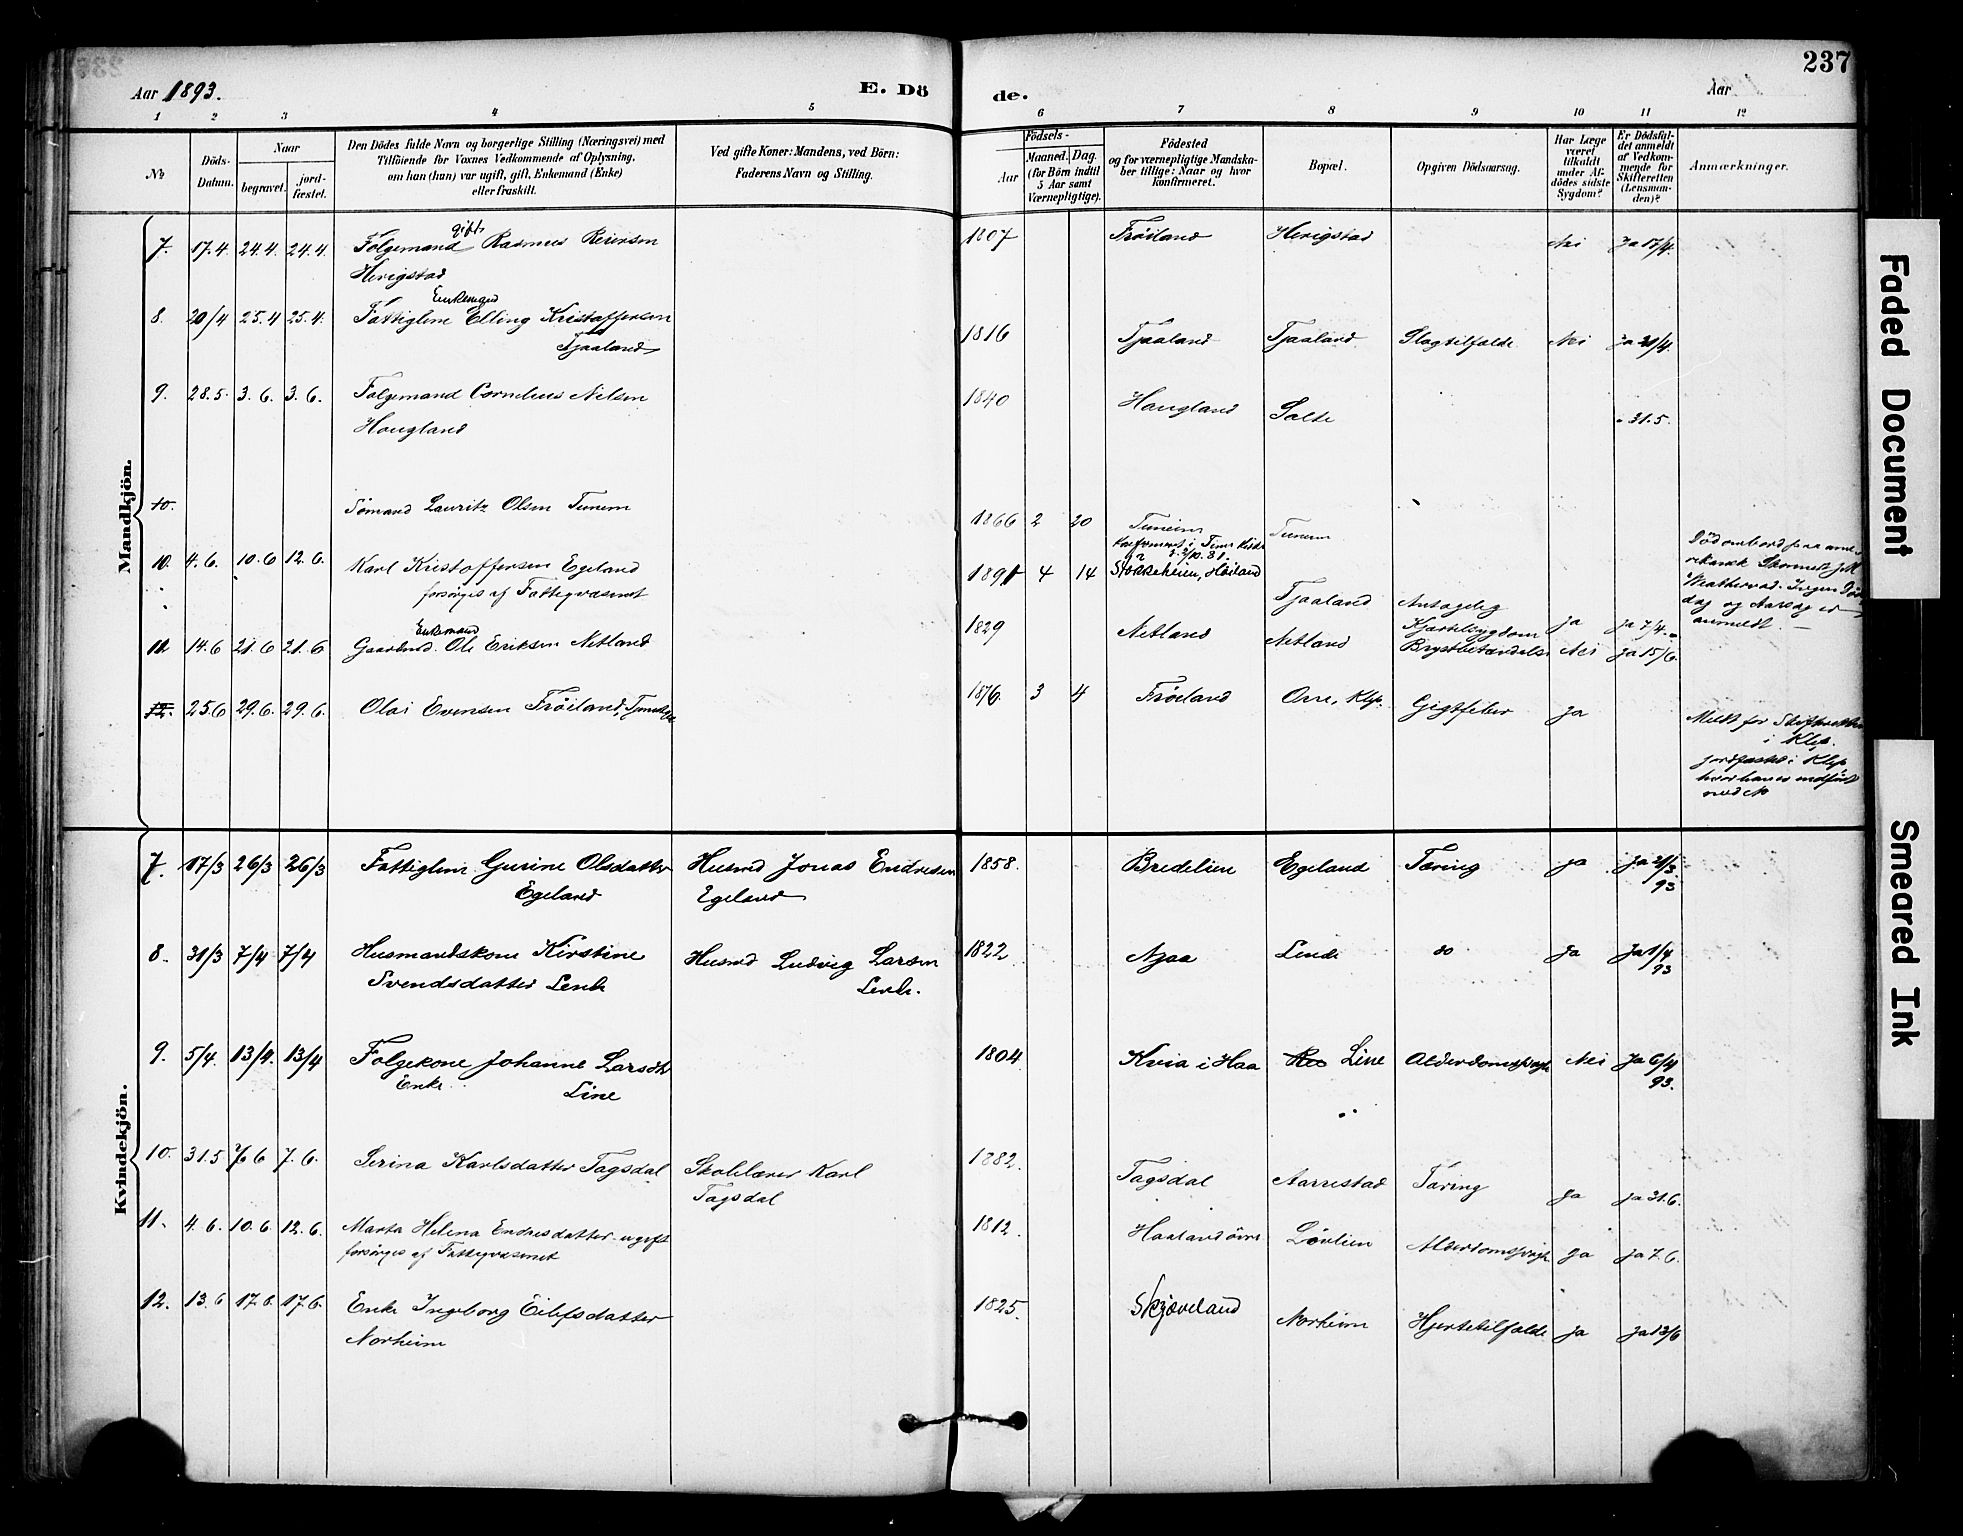 237
Aar 1893.
E. Dö
de.
Aar
1 2 3 4 5 6 7 8 9 10 11 12
No
Döds-
Datum.
Naar
begravet.
jord-
fæstet.
Den Dödes fulde Navn og borgerlige Stilling (Næringsvei) med
Tilföiende for Voxnes Vedkommende af Oplysning,
om han (hun) var ugift, gift, Enkemand (Enke)
eller fraskilt.
Ved gifte Koner: Mandens, ved Börn:
Faderens Navn og Stilling.
Födsels-
Aar
Maaned. Dag.
(for Börn indtil
5 Aar samt
Værnepligtige).
Födested
og for værnepligtige Mandska-
ber tillige: Naar og hvor
konfirmeret.
Bopæl.
Opgiven Dödsaarsag.
Har Læge
været
tilkaldt
under Af-
dödes sidste
Sygdom?
Er Dödsfal-
det anmeldt
af Vedkom-
mende for
Skifteretten
(Lensman-
den)?
Anmærkninger.
Mandkjön.
gift
7. 17.4 24.4. 24.4. Folgemand Rasmus Reiersen 1807 Fröiland Herigstad Nei Ja 17/4.
Herigstad
Enkemand
8. 20/4 25.4 25.4. Fattiglem Elling Kristoffersen
Tjaaland 1816 Tjaaland Tjaaland Slagtilfælde Nei Ja 20/4.
9. 28.5. 3.6. 3.6. Folgemand Cornelius Nilsen 1840 Haugland Salte 31.5.
Haugland
10. Sømand Lauritz Olsen Tunem 1866 2 20 Tuneim Tunem
Konfirmeret i Time Kirke
2/10.81.
Död ombord paa ame-
rikansk Skonnert J. M.
Weatherwad. Ingen Döds-
dag og Aarsag er
anmeldt.
10. 4.6. 10.6 12.6. Karl Kristoffersen Egeland 1891 4 14 Stokkeheien, Höiland Tjaaland Antagelig
forsörges af Fattigvæsenet Hjertesygdom Ja Ja 7/4.
Enkemand
11 14.6 21.6 21.6 Gaardmd. Ole Eriksen Netland 1829 Netland Netland Brystbetændelse Nei Ja 15/6.
12. 25.6 29.6. 29.6. Olai Evensen Fröiland, 1876. 3 4 Fröiland Orre, Klep. Gigtfeber Ja
Meldt for Skifteretten
i Klep.
jordfæstet i Klep
hvor han er indfört
med No
Kvindekjön.
7. 17/3 26/3 26/3 Fattiglem Gurine Olsdatter Husmd Jonas Endresen 1858. Bredelien Egeland Tæring Ja Ja 21/3
Egeland Egeland 93
8. 31/3 7/4 7/4 Husmandskone Kirstine Husmd Ludvig Larsen 1822 Njaa Lende do Ja Ja 1/4
Svendsdatter Lende Lende. 93
9. 5/4. 13/4. 13/4 Folgekone Johanne Larsdtr 1804 Kvia i Haa Line Alderdomssvagh. Nei Ja 6/4
Enke. Line 93.
10. 31.5 7.6 7.6. Serina Karlsdatter Tagsdal Skolelærer Karl 1882. Tagsdal Aarrestad Tæring Ja Ja 31.6.
Tagsdal
11. 4.6. 10.6 12.6. Marta Helena Endresdatter ugift 1812. Haaland övre Lövlien Alderdomssvagh. Ja Ja 7.6.
forsörges af Fattigvæsenet
12. 13.6 17.6. 17.6. Enke Ingeborg Eilefsdatter 1825. Skjæveland Norheim Hjertetilfælde Ja Ja 13/6
Norheim
Faded Document
Smeared Ink